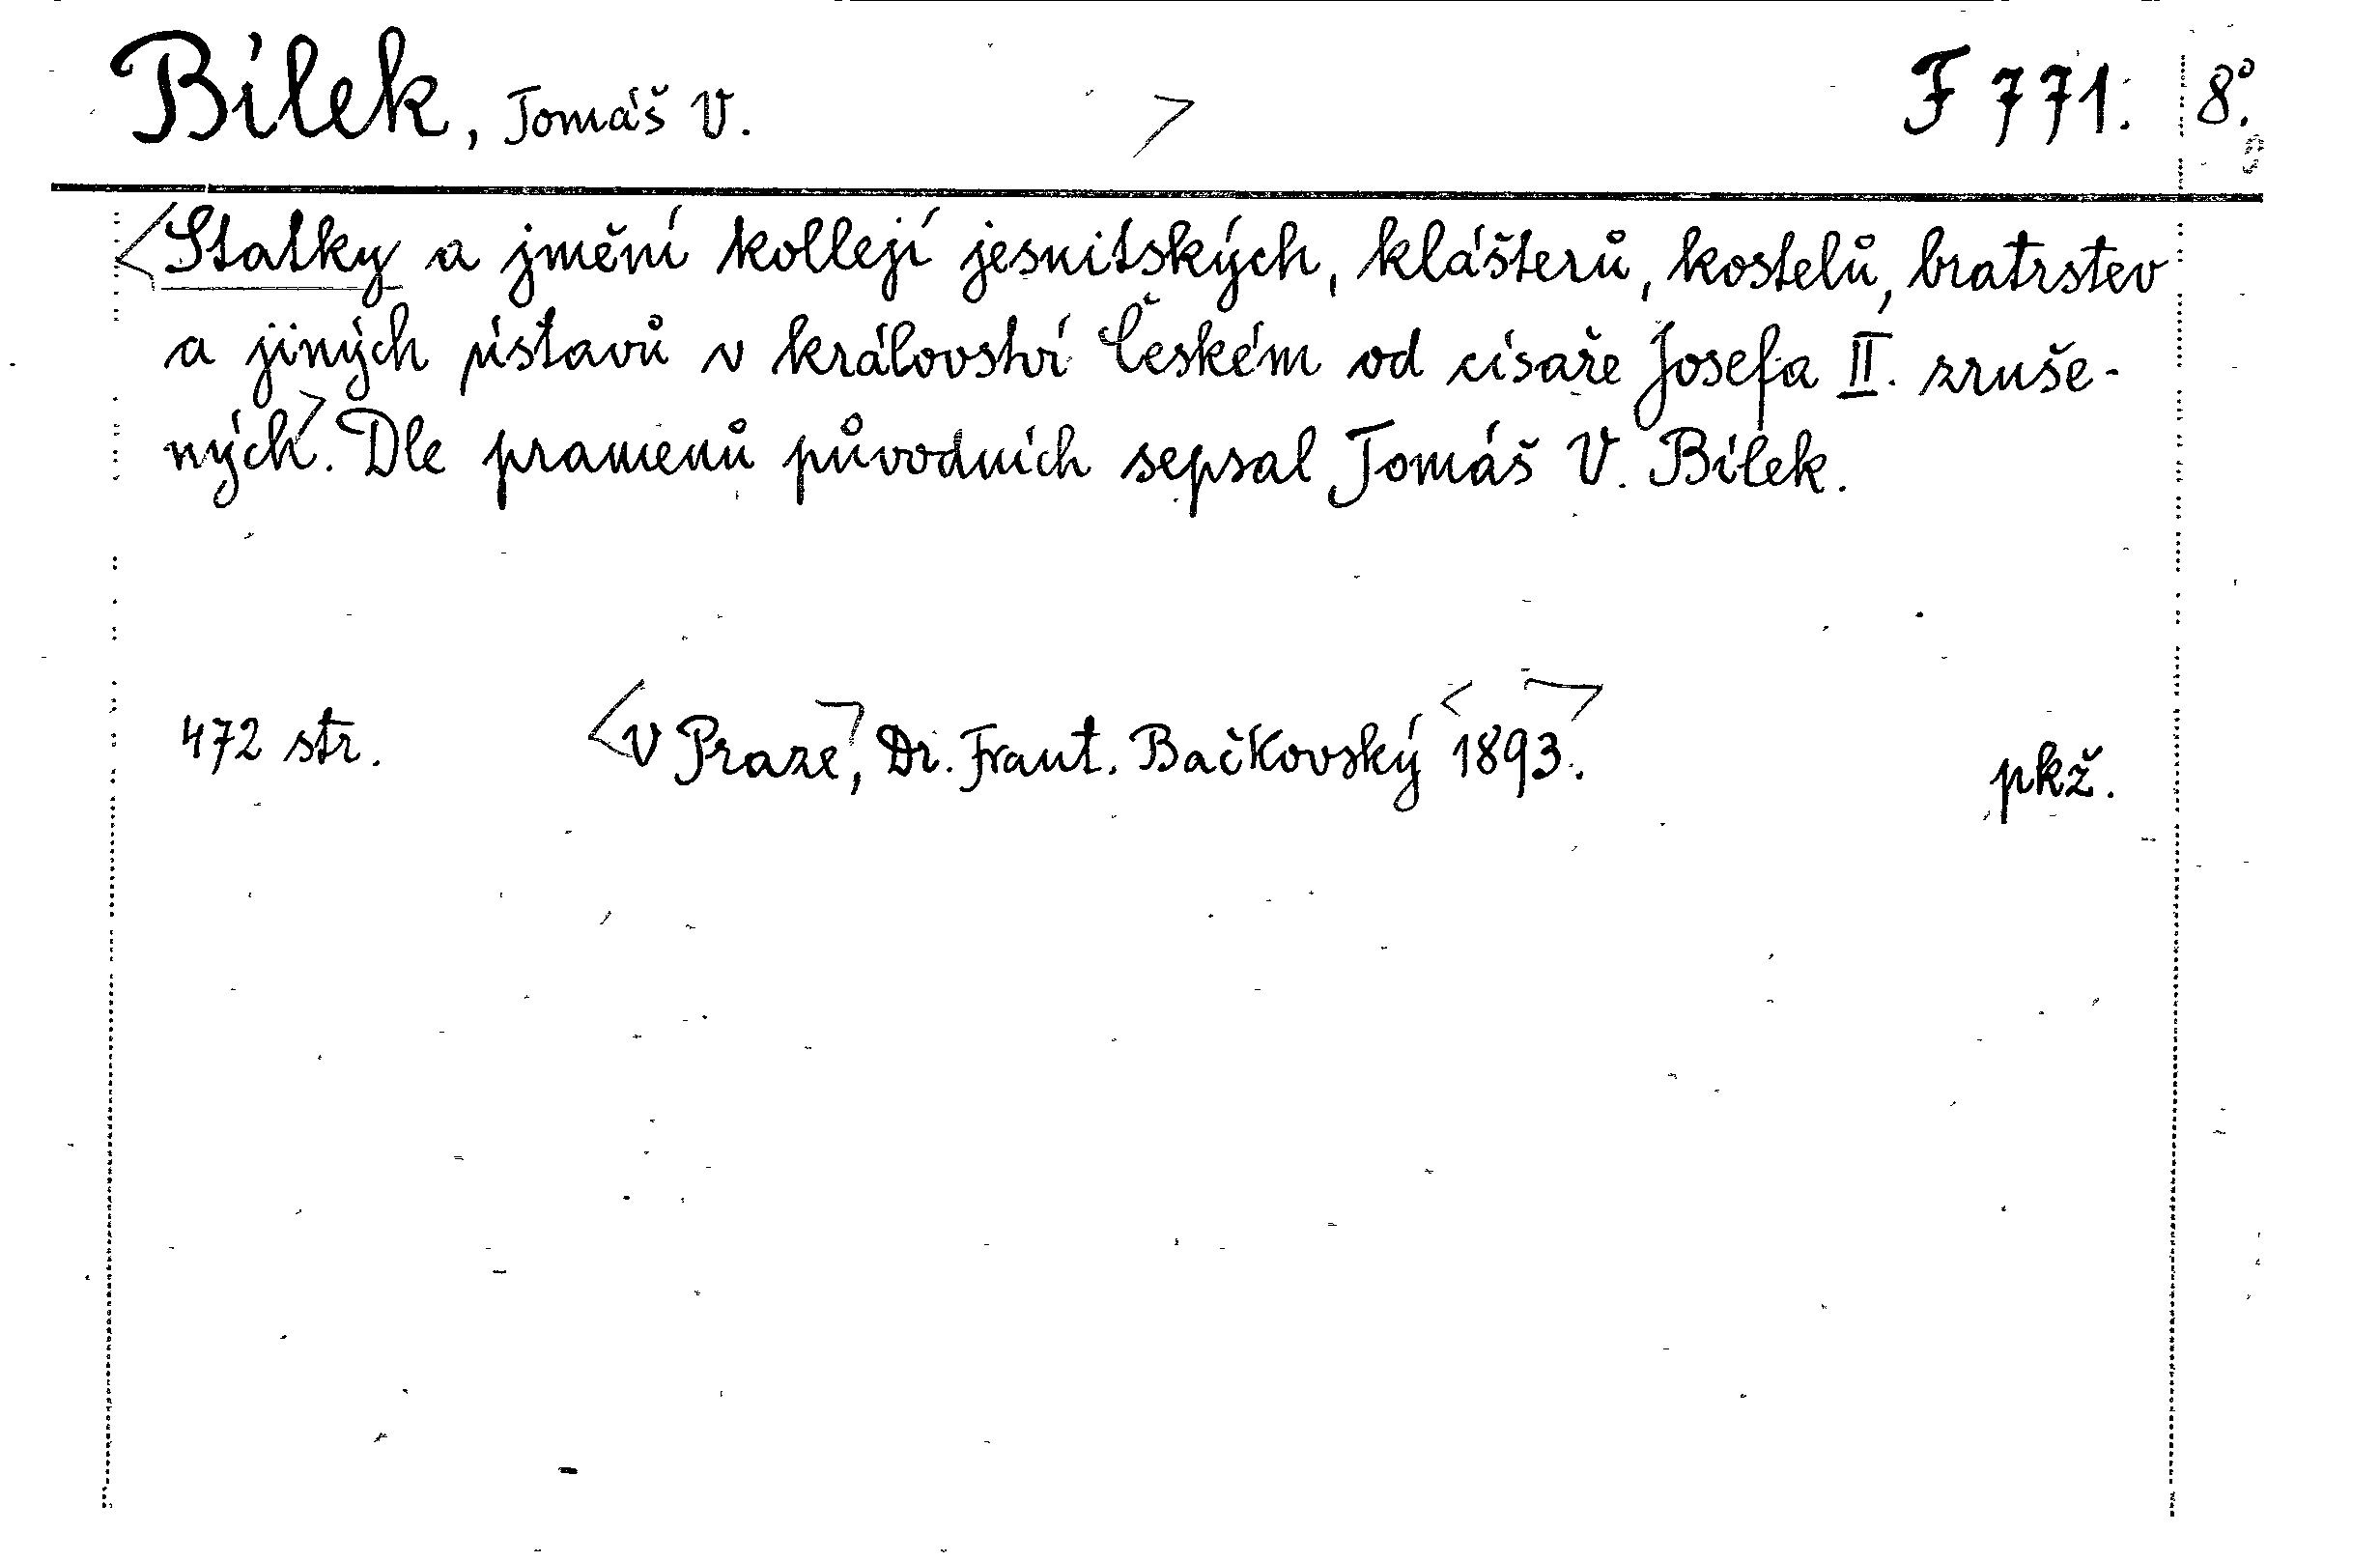 Bílek, Tomáš V. > F 771. 8°.
<Statky a jmění kollejí jesuitských, klášterů, kostelů, bratrstev
a jiných ústavů v království Českém od císaře Josefa II. zruše-
ných>. Dle pramenů původních sepsal Tomáš V. Bílek.
472 str. <v Praze>, Dr. Frant. Bačkovský <1893>. pkž.